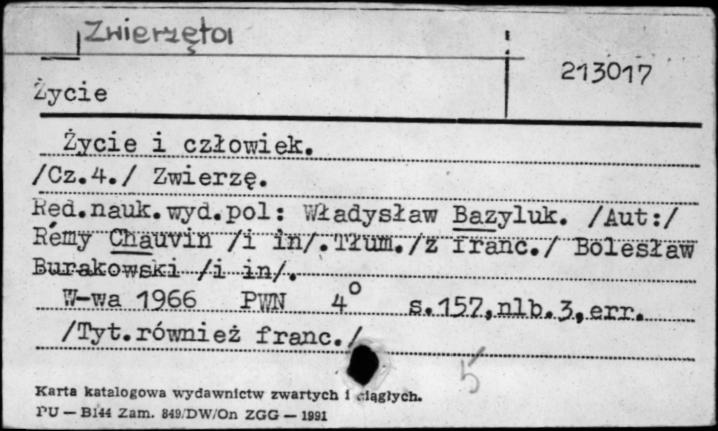 Zwierzęta
213017
Życie
Życie i człowiek.
/Cz.4./ Zwierzę.
Red.nauk.wyd.pol: Władysław Bazyluk. /Aut:/
Rémy Chauvin /i in/.Tłum./z franc./ Bolesław
Burakowski /i in/.
W-wa 1966 PWN 4° s.157,nlb.3,err.
/Tyt.również franc./
5
Karta katalogowa wydawnictw zwartych i ciągłych.
PU — B144 Zam. 849/DW/On ZGG — 1991